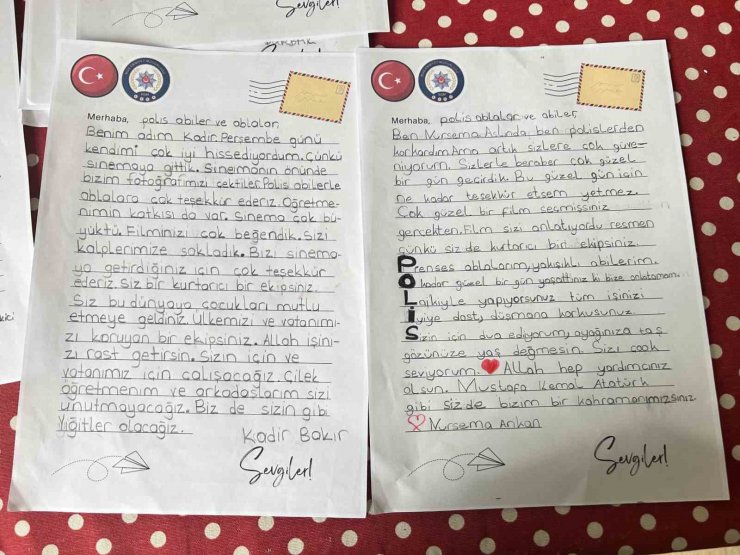 Sevgiler!
Merhaba, polis abiler ve ablalar,
Benim adım Kadir. Perşembe günü
kendimi çok iyi hissediyordum. Çünkü
sinemaya gittik. Sinemanın önünde
bizim fotoğrafımızı çektiler. Polis abilerle
ablalara çok teşekkür ederiz. Öğretme-
nimin katkısı da var. Sinema çok bü-
yüktü. Filminizi çok beğendik. Sizi
kalplerimize sakladık. Bizi sinema-
ya getirdiğiniz için çok teşekkür
ederiz. Siz bir kurtarıcı bir ekipsiniz.
Siz bu dünyaya çocukları mutlu
etmeye geldiniz. Ülkemizi ve vatanımı-
zı koruyan bir ekipsiniz. Allah işini-
zi rast getirsin. Sizin için ve
vatanımız için çalışacağız. Çilek
öğretmenim ve arkadaşlarım sizi
unutmayacağız. Biz de sizin gibi
yiğitler olacağız.
Kadir Bakır
Sevgiler!
Merhaba, polis ablalar ve abiler,
Ben Nursema Aslında ben polislerden
korkardım. Ama artık sizlere çok güve-
niyorum. Sizlerle beraber çok güzel
bir gün geçirdik. Bu güzel gün için
ne kadar teşekkür etsem yetmez.
Çok güzel bir film seçmişsiniz
gerçekten. Film sizi anlatıyordu resmen
çünkü siz de kurtarıcı bir ekipsiniz.
Prenses ablalarım, yakışıklı abilerim.
O kadar güzel bir gün yaşattınız ki bize anlatamam.
Laikiyle yapıyorsunuz tüm işinizi
İyiye dost, düşmana korkusunuz.
Sizin için dua ediyorum, ayağınıza taş
gözünüze yaş değmesin. Sizi çook
seviyorum. Allah hep yardımcınız
olsun. Mustafa Kemal Atatürk
gibi siz de bizim bir kahramanımızsınız.
Nursema Arıkan
Sevgiler!